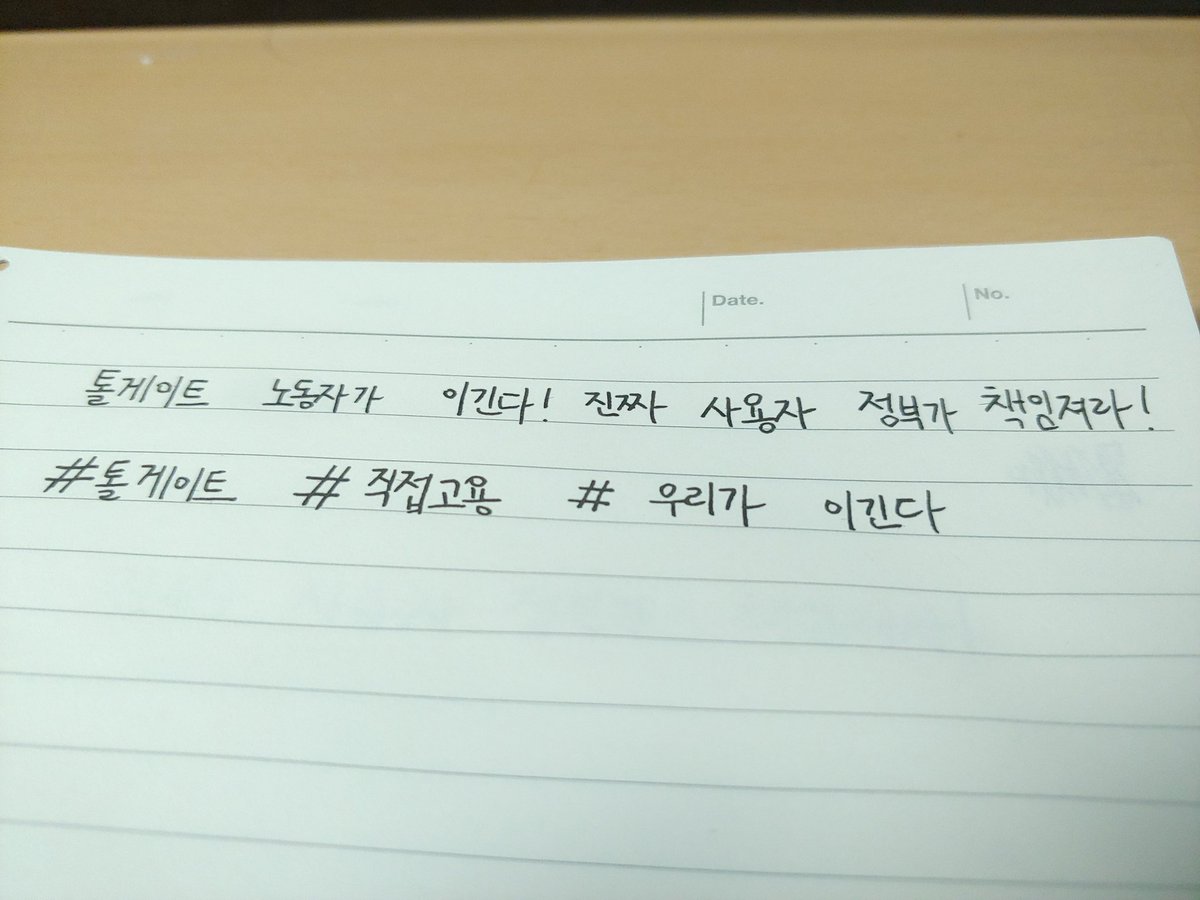 Date. No.
톨게이트 노동자가 이긴다! 진짜 사용자 정부가 책임져라!
#톨게이트 #직접고용 # 우리가 이긴다